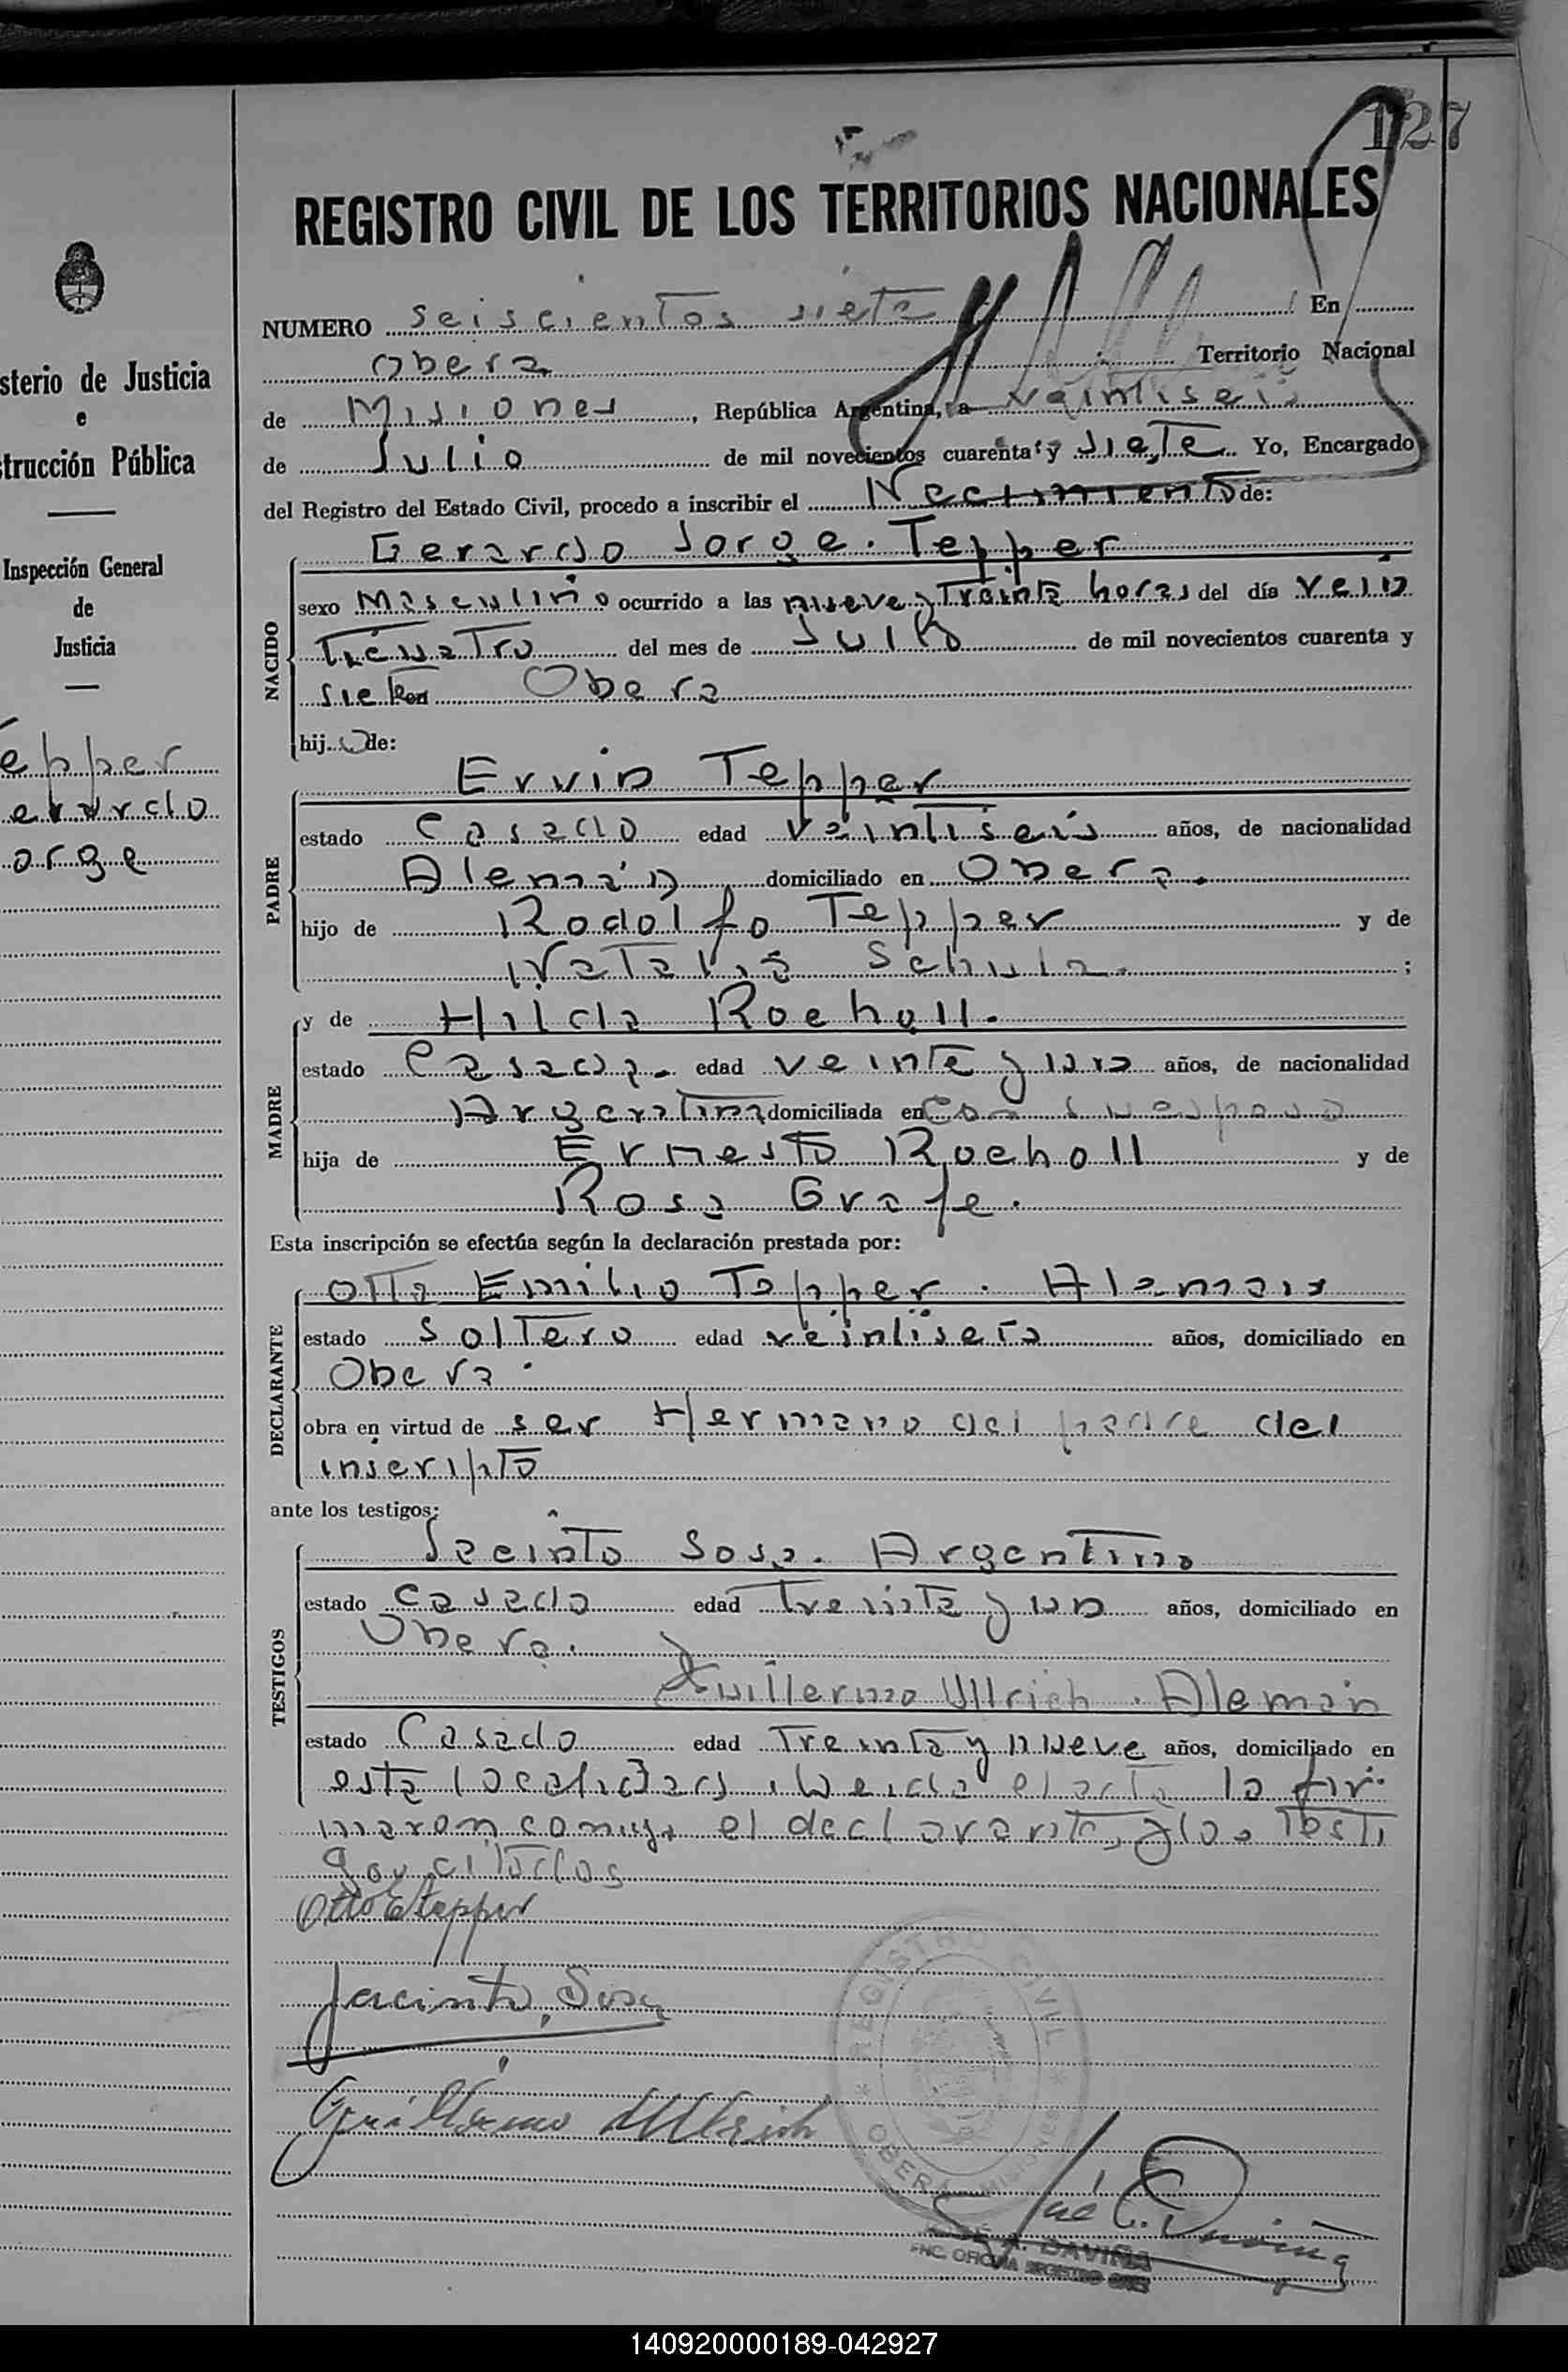 127
REGISTRO CIVIL DE LOS TERRITORIOS NACIONALES
NUMERO seiscientos siete En
Obera Territorio Nacional
de Misiones, República Argentina, a veintiseis
de Julio de mil novecientos cuarenta y siete Yo, Encargado
del Registro del Estado Civil, procedo a inscribir el Nacimiento de:
Gerardo Jorge Tepper
NACIDO
sexo Masculino ocurrido a las nueve y treinta horas del día vein
ticuatro del mes de Julio de mil novecientos cuarenta y
siete en Obera
hijo de:
Ervin Tepper
PADRE
estado casado edad veintiseis años, de nacionalidad
Alemán domiciliado en Obera.
hijo de Rodolfo Tepper y de
Natalia Schulz ;
y de Hilda Rocholl.
MADRE
estado Casada edad veinte y uno años, de nacionalidad
Argentina domiciliada en Con su esposo
hija de Ernesto Rocholl y de
Rosa Grafe.
Esta inscripción se efectúa según la declaración prestada por:
DECLARANTE
Otto Emilio Tepper. Aleman
estado soltero edad veintiseis años, domiciliado en
Obera.
obra en virtud de ser Hermano del padre del
inscripto
ante los testigos:
TESTIGOS
Jacinto Sosa. Argentino
estado casado edad treinta y un años, domiciliado en
Obera.
Guillermo Ullrich. Alemán
estado Casado edad treinta y nueve años, domiciliado en
esta localidad, leida el acta la fir
maron conmigo el declarante, y los testi
gos citados
Otto E Tepper
Jacinto Sosa
Guillermo Ullrich
REGISTRO CIVIL
OBERÁ MISIONES
José A. Daviña
A. DAVIÑA
ENC. OFICINA REGISTRO CIVIL
sterio de Justicia
e
strucción Pública
Inspección General
de
Justicia
epper
erardo
orge
140920000189-042927